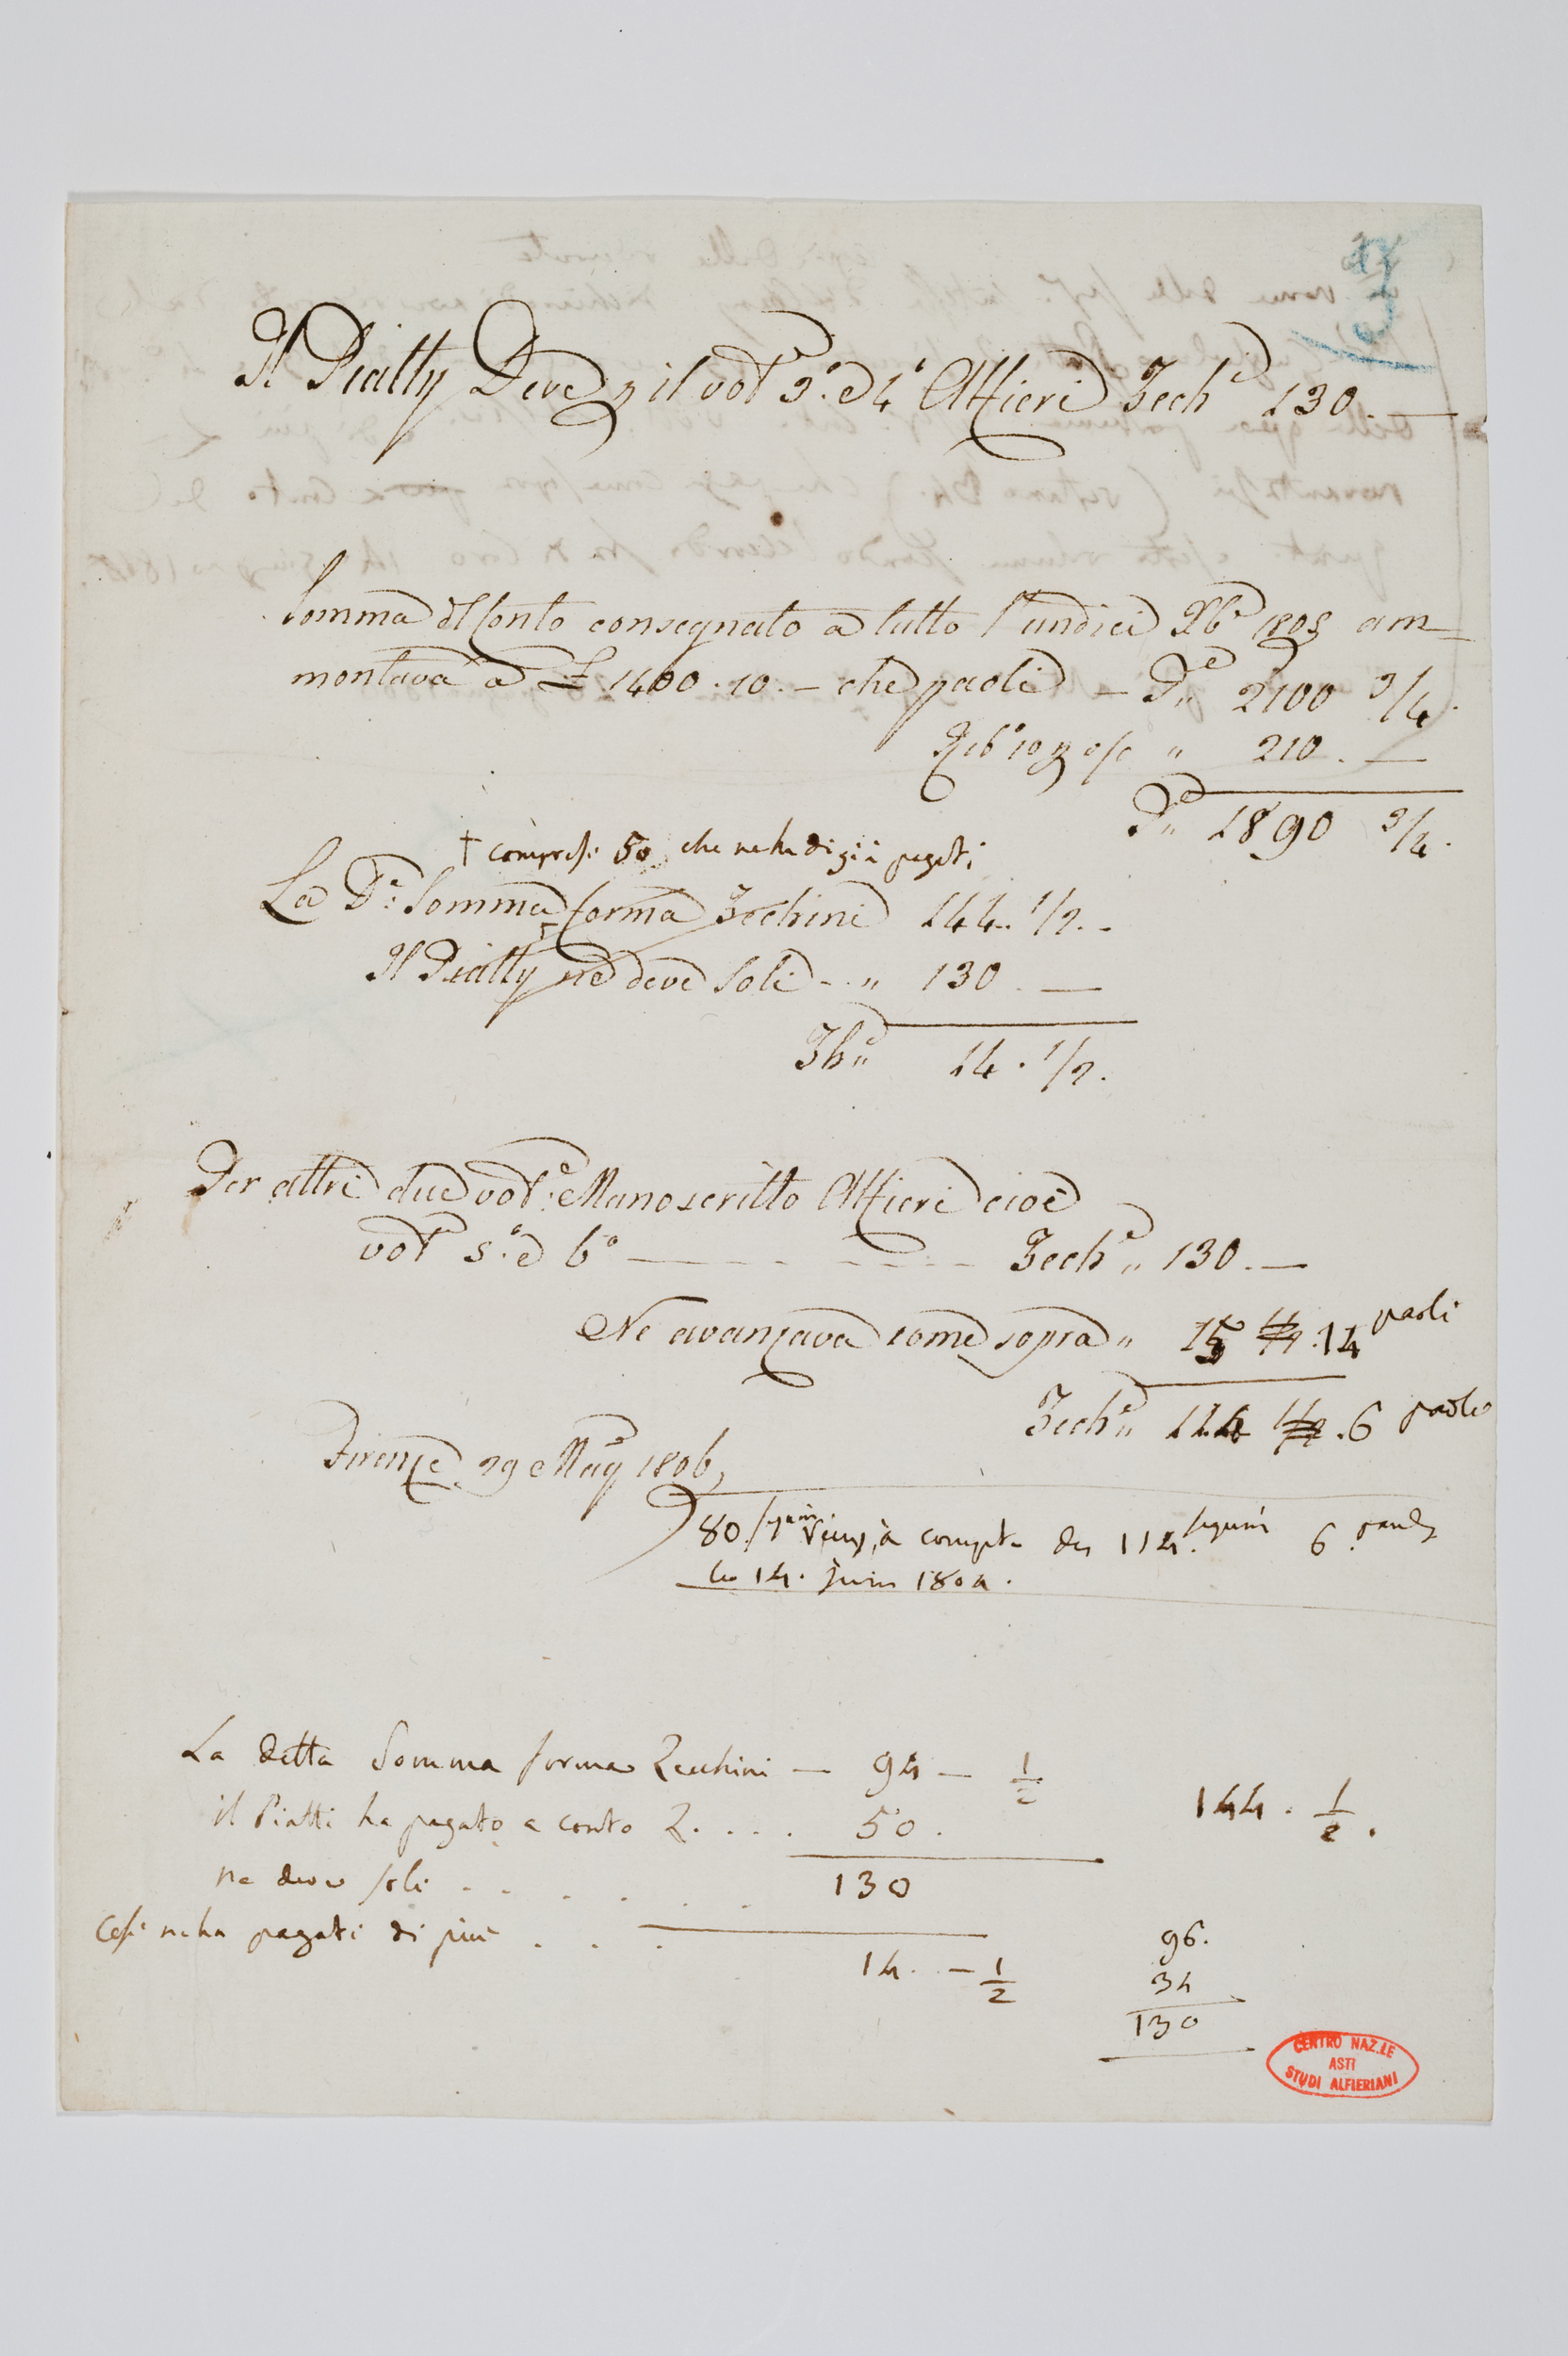 Il Piatty Deve p il vol.ᵉ 3.º e 4.º Alfieri Zech.ⁱ 130.—
Somma il Conto consegnato a tutto l'undici Xbʳᵉ 1805 am=
montava a £ 1400.10.— che paoli — P.ⁱ" 2100 3/4.
Rib.º 10 p o/o " 210.—
P.ⁱ" 1890 3/4.
† compresi 50 che ne ha di già pagati
La D.ª Somma forma Zechini 144. 1/2.-
†
Il Piatty ne deve Soli - - " 130.—
Zh.ⁱ" 14. 1/2.
Per altri due vol.ⁱ Manoscritto Alfieri cioè
vol.ᵉ 5.º e 6.º — - - - - - Zech.ⁱ" 130.—
Ne avanzava come sopra " 15 1/2 .14 paoli
Zech.ⁱ" 114 1/2 .6 paoli
Firenze 29 Mag.º 1806
80. à compte des 114. sequins 6. pauls
le 14. Juin 180
La detta Somma forma Zecchini — 94 — 1/2
144. 1/2.
il Piatti ha pagato a conto Z. . . . 50.
ne deve soli . . . . . . . 130
Così ne ha pagati di più . . .
14. — 1/2
96.
34
130
CENTRO NAZ.LE
ASTI
STUDI ALFIERIANI